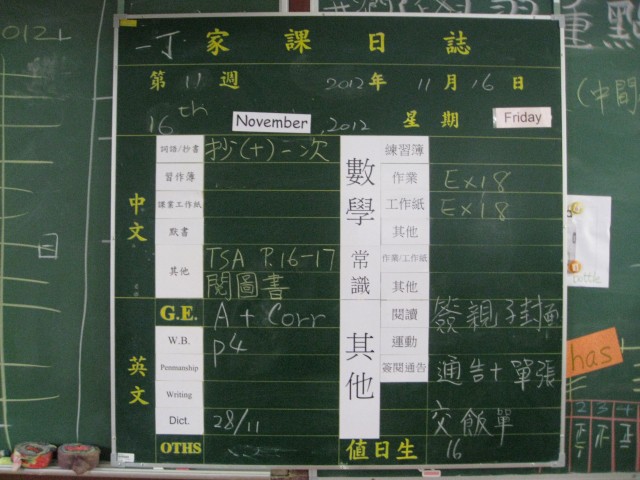 一丁 家課日誌
第 11 週 2012年 11月 16日
16th November, 2012 星期 Friday
中文
詞語/抄書 抄(十)一次
習作簿
默書
其他 TSA P.16-17
閱圖書
英文
G.E. A + Corr
W.B. P4
Penmanship
Writing
Dict. 28/11
OTHS
數學
練習簿
作業 Ex18
工作紙 Ex18
其他
常識
作業/工作紙
其他
其他
閱讀 簽親子封面
運動
簽閱通告 通告+單張
交飯單
值日生 16
重點
(中間
bottle
has
2 3 4